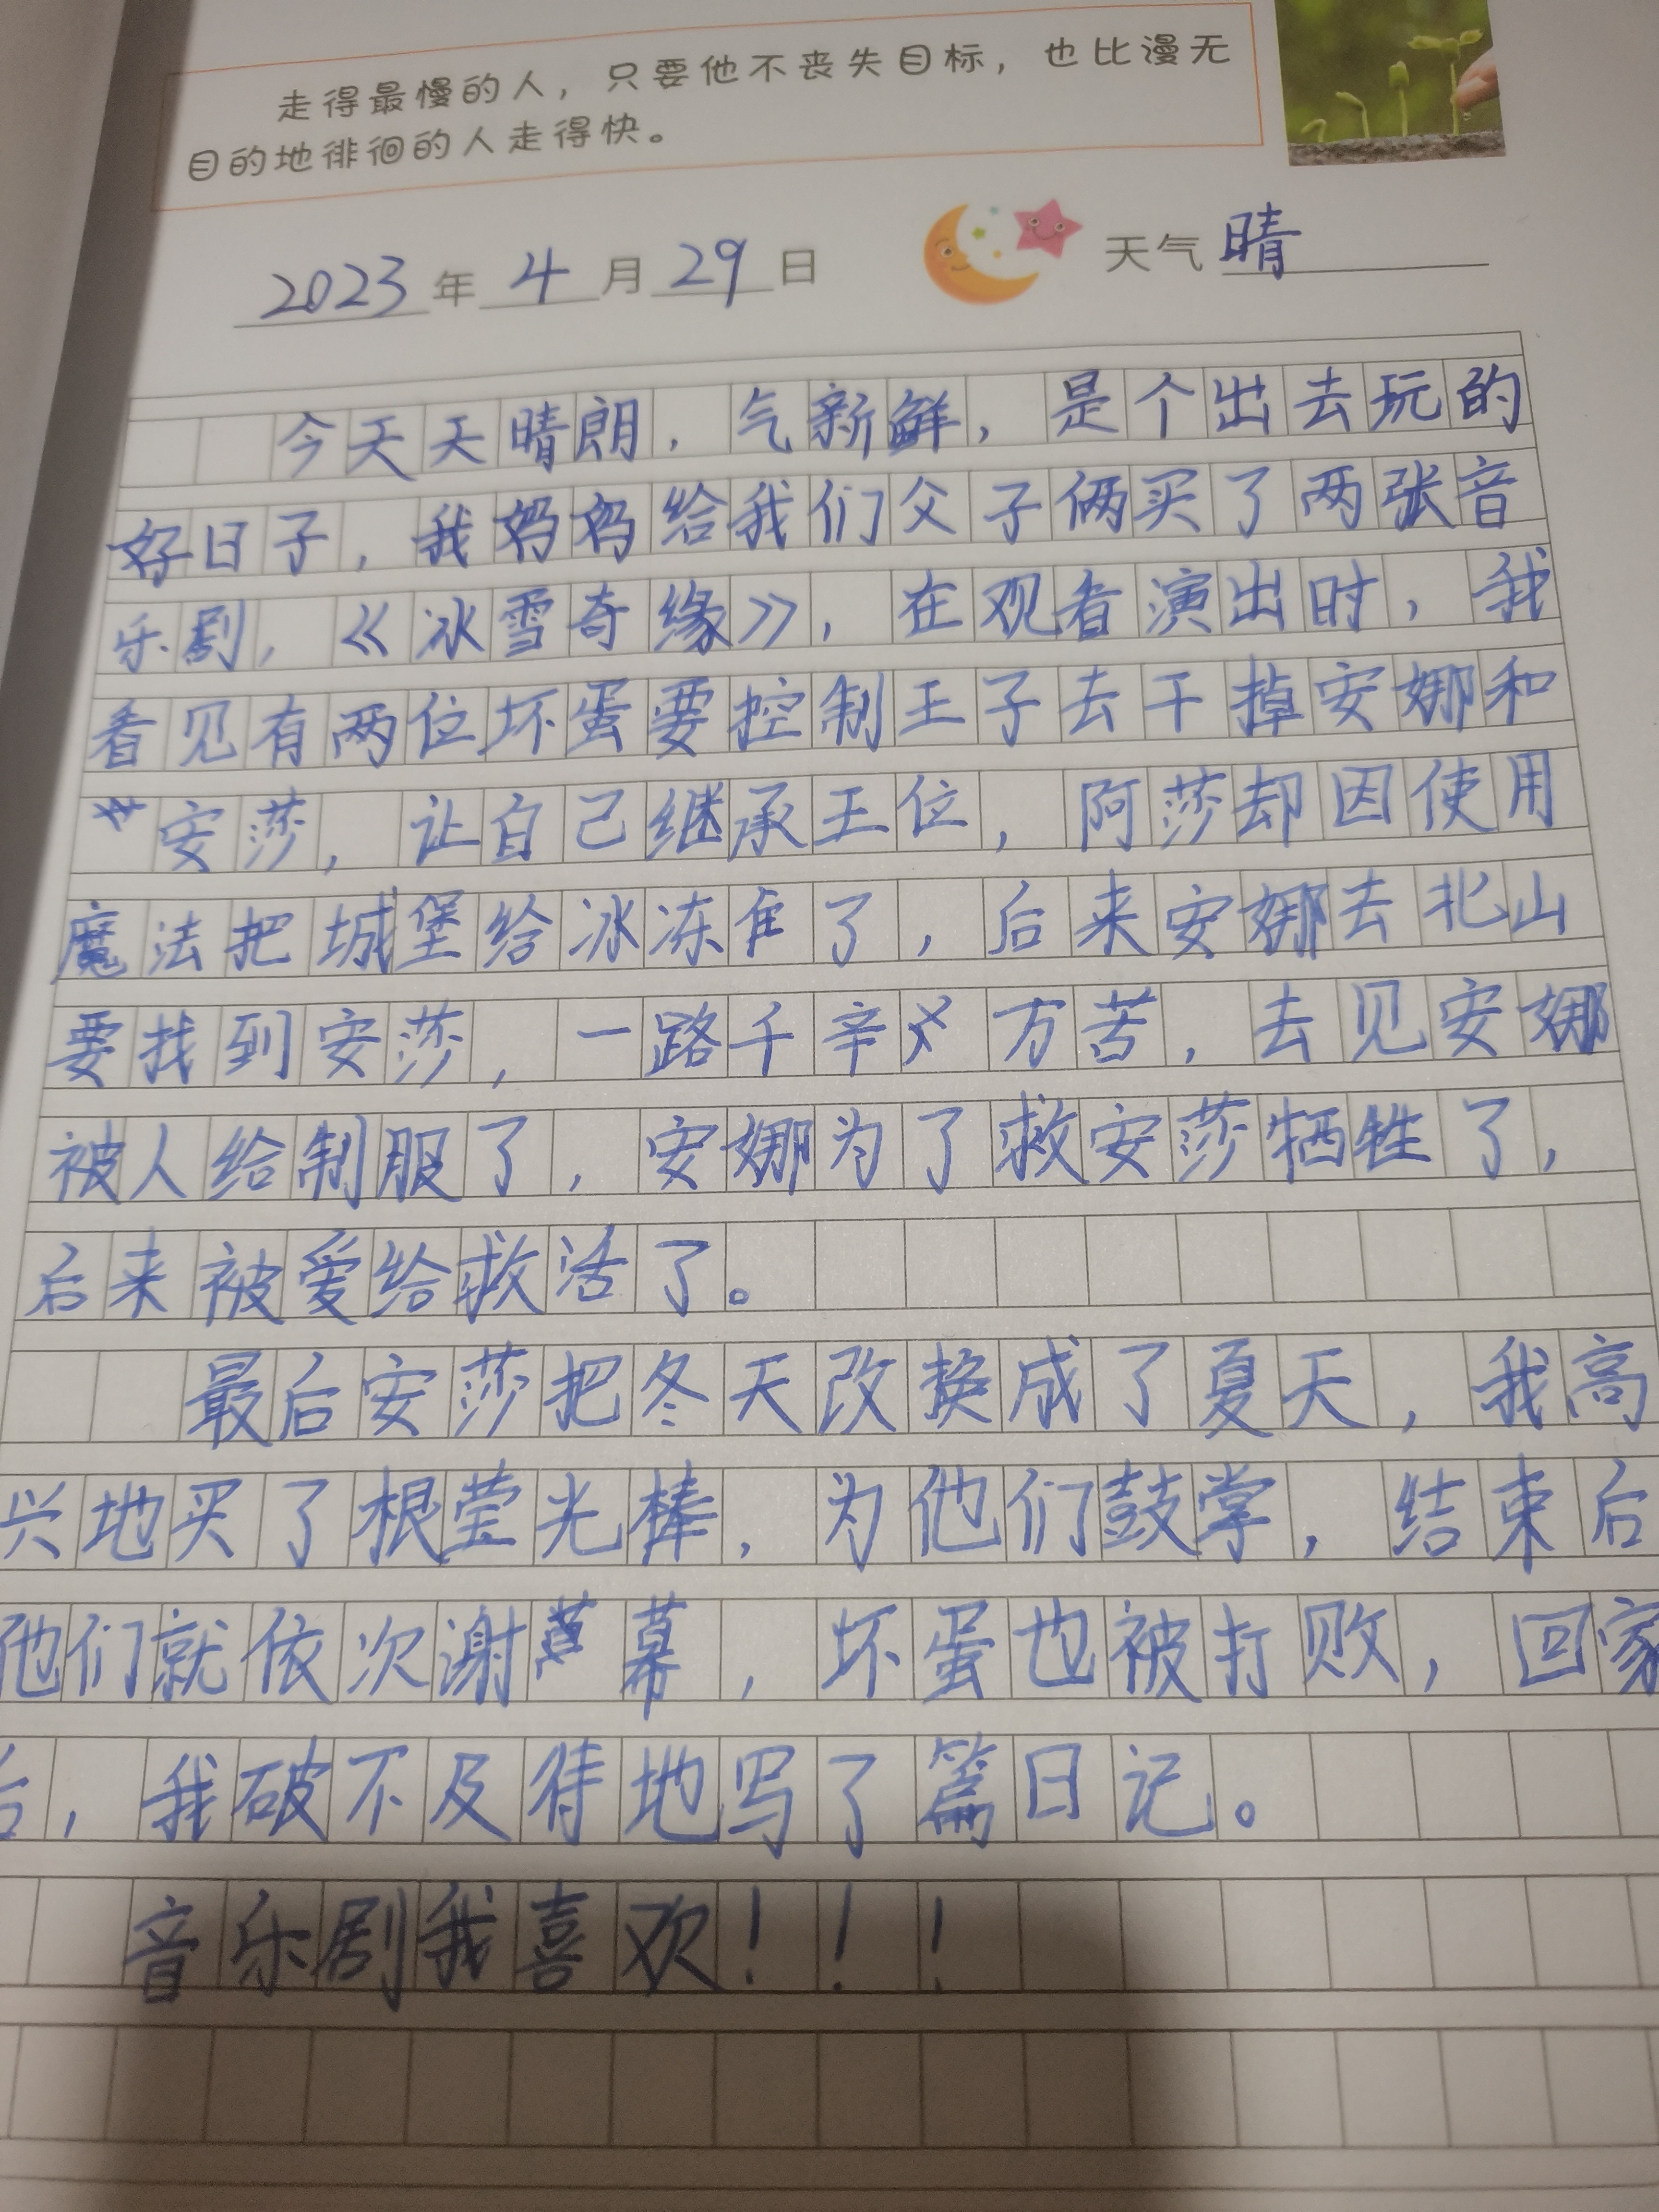 走得最慢的人，只要他不丧失目标，也比漫无
目的地徘徊的人走得快。
2023年4月29日 天气 晴
今天天晴朗，气新鲜，是个出去玩的
好日子，我妈妈给我们父子俩买了两张音
乐剧，《冰雪奇缘》，在观看演出时，我
看见有两位坏蛋要控制王子去干掉安娜和
安莎，让自己继承王位，阿莎却因使用
魔法把城堡给冰冻了，后来安娜去北山
要找到安莎，一路千辛万苦，去见安娜
被人给制服了，安娜为了救安莎牺牲了，
后来被爱给救活了。
最后安莎把冬天改换成了夏天，我高
兴地买了根莹光棒，为他们鼓掌，结束后
他们就依次谢幕，坏蛋也被打败，回家
后，我破不及待地写了篇日记。
音乐剧我喜欢！！！